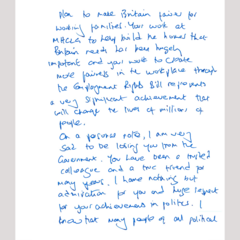 plan to make Britain fairer for
working families. Your work at
MHCLG to help build the homes that
Britain needs has been hugely
important and your work to create
more fairness in the workplace through
the Employment Rights Bill represents
a very significant achievement that
will change the lives of millions of
people.
On a personal note, I am very
sad to be losing you from the
Government. You have been a trusted
colleague and a true friend for
many years. I have nothing but
admiration for you and huge respect
for your achievements in politics. I
know that many people of all political